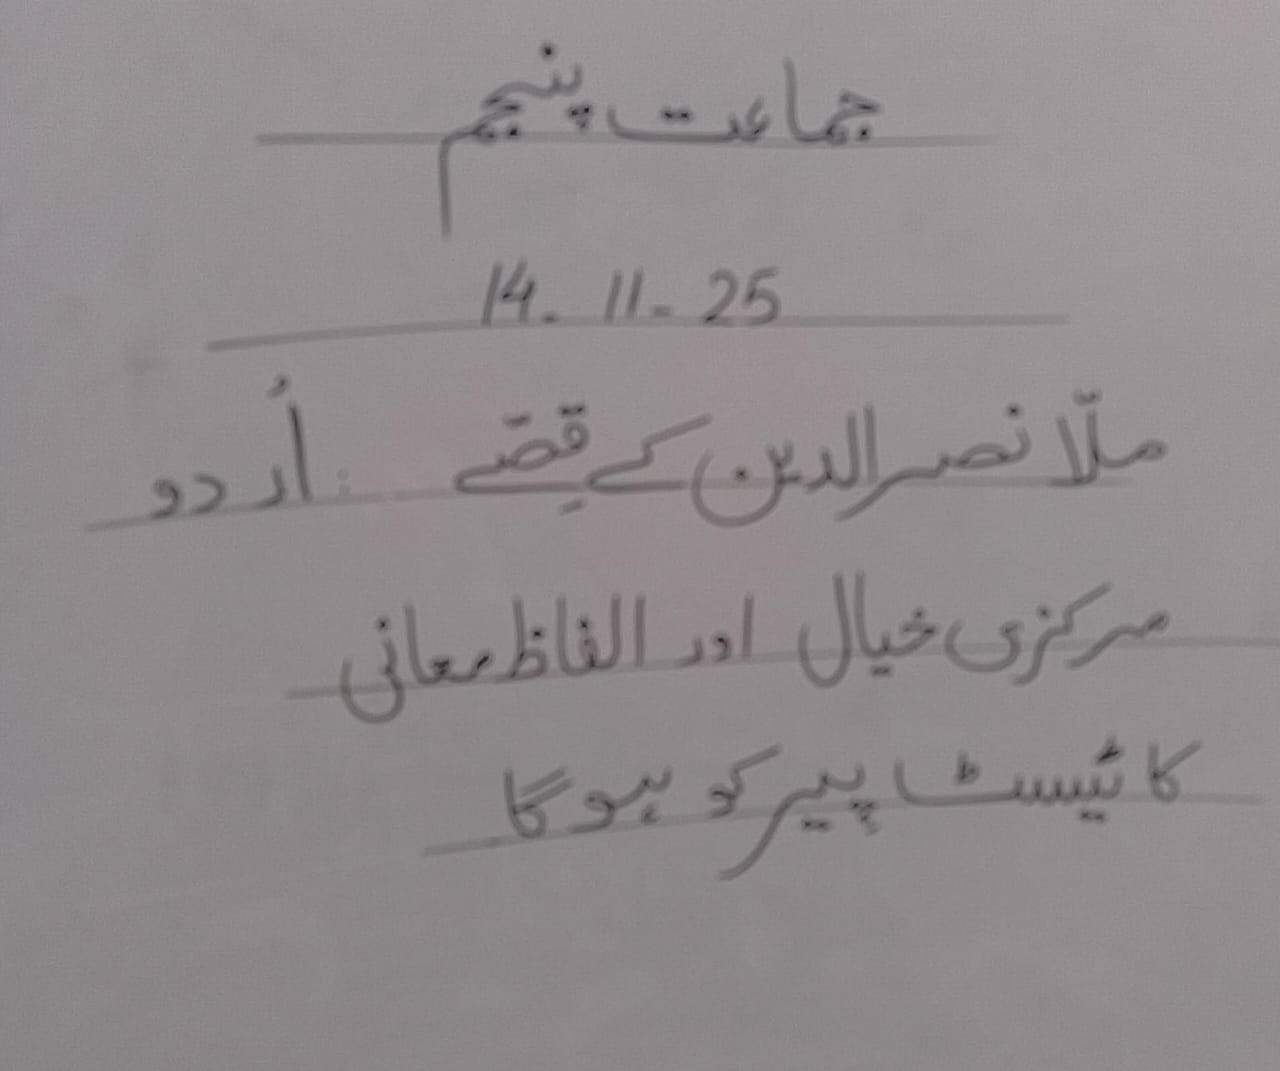 جماعت پنجم
14. 11- 25
ملّا نصر الدین کے قصّے : اُردو
مرکزی خیال اور الفاظ معانی
کا ٹیسٹ پیر کو ہو گا